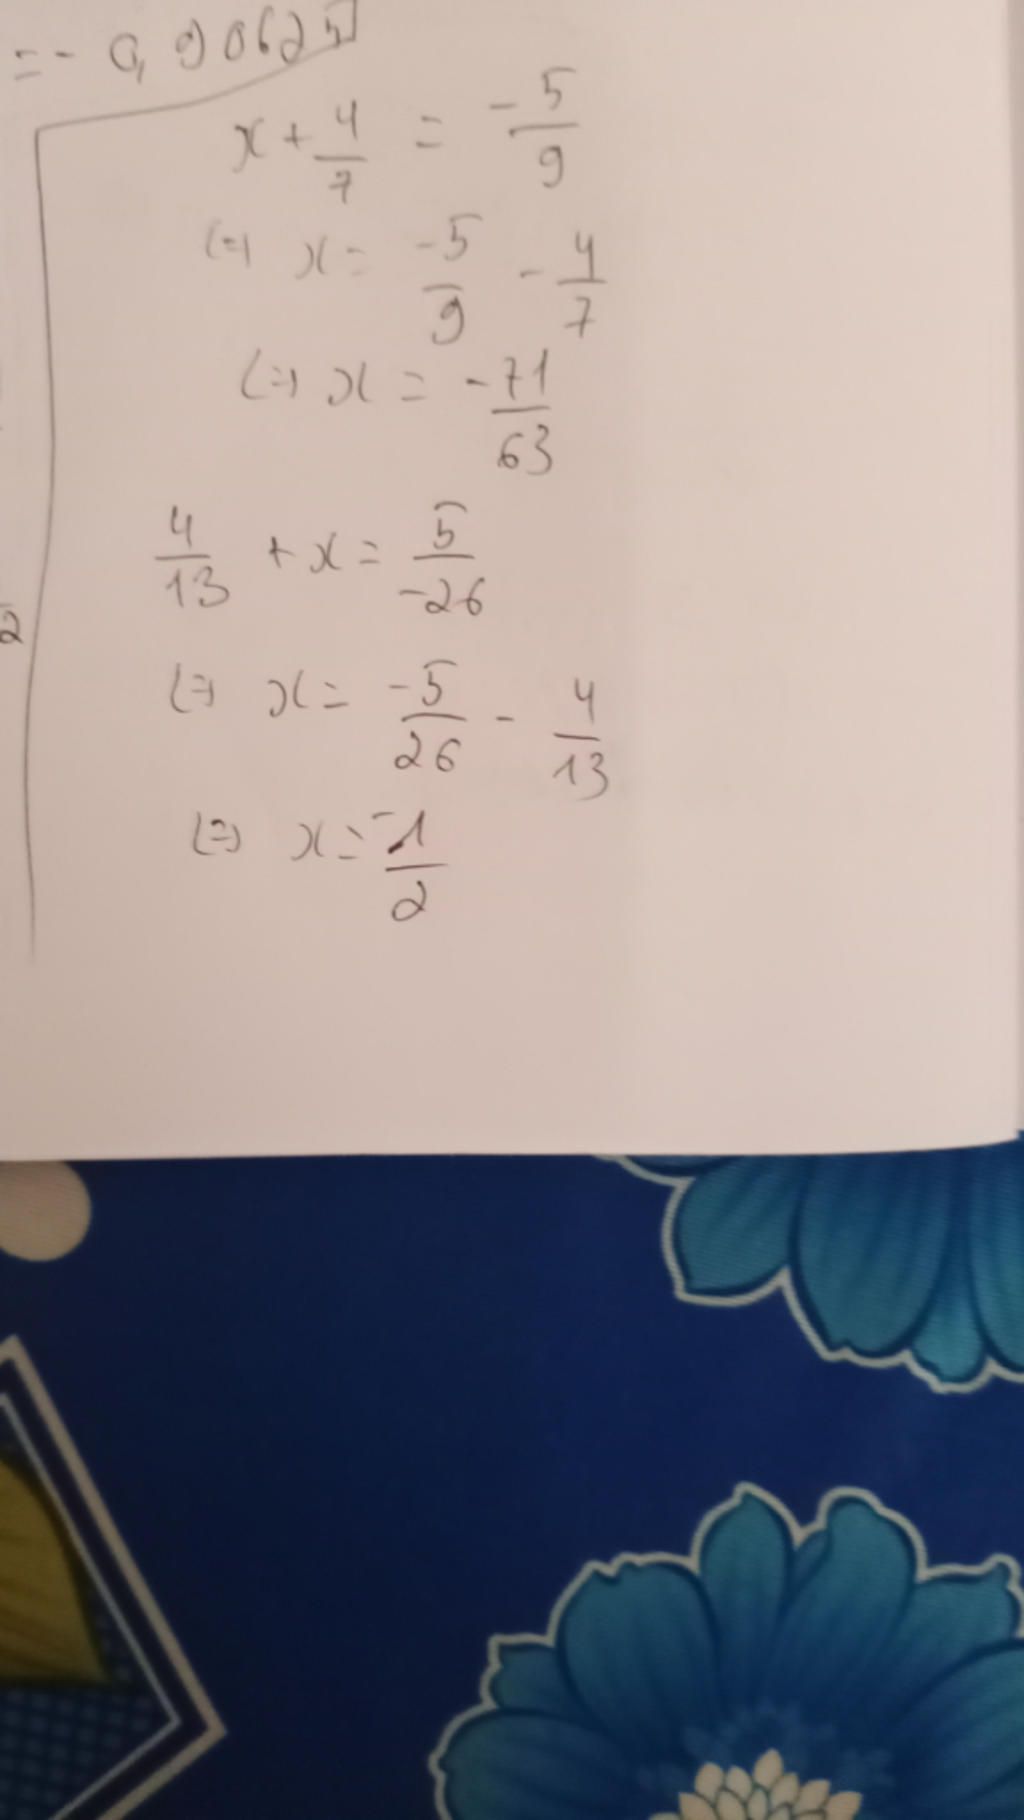 = - 0,90625
x + 4/7 = -5/9
(=) x = -5/9 - 4/7
(=) x = -71/63
4/13 + x = 5/-26
(=) x = -5/26 - 4/13
(=) x = -1/2
2